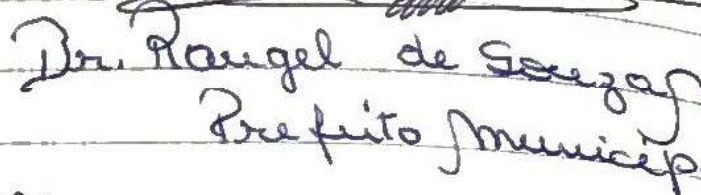 Dr. Rangel de Souza
Prefeito Municip